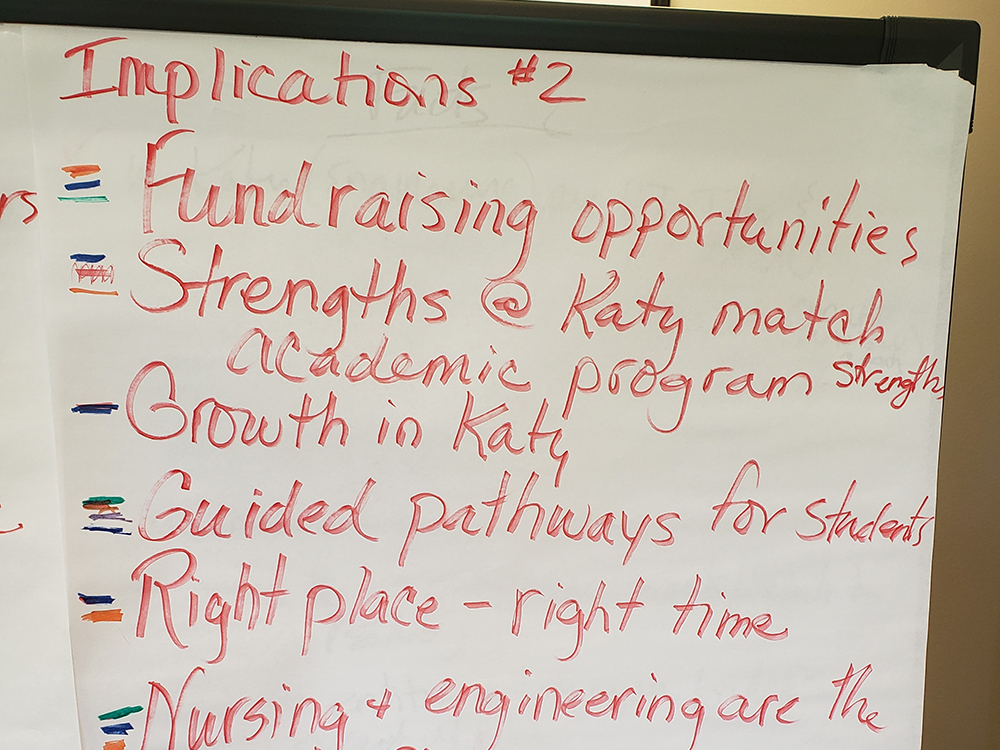 Implications #2
Fundraising opportunities
Strengths @ Katy match
academic program strengths
Growth in Katy
Guided pathways for students
Right place - right time
Nursing + engineering are the
rs